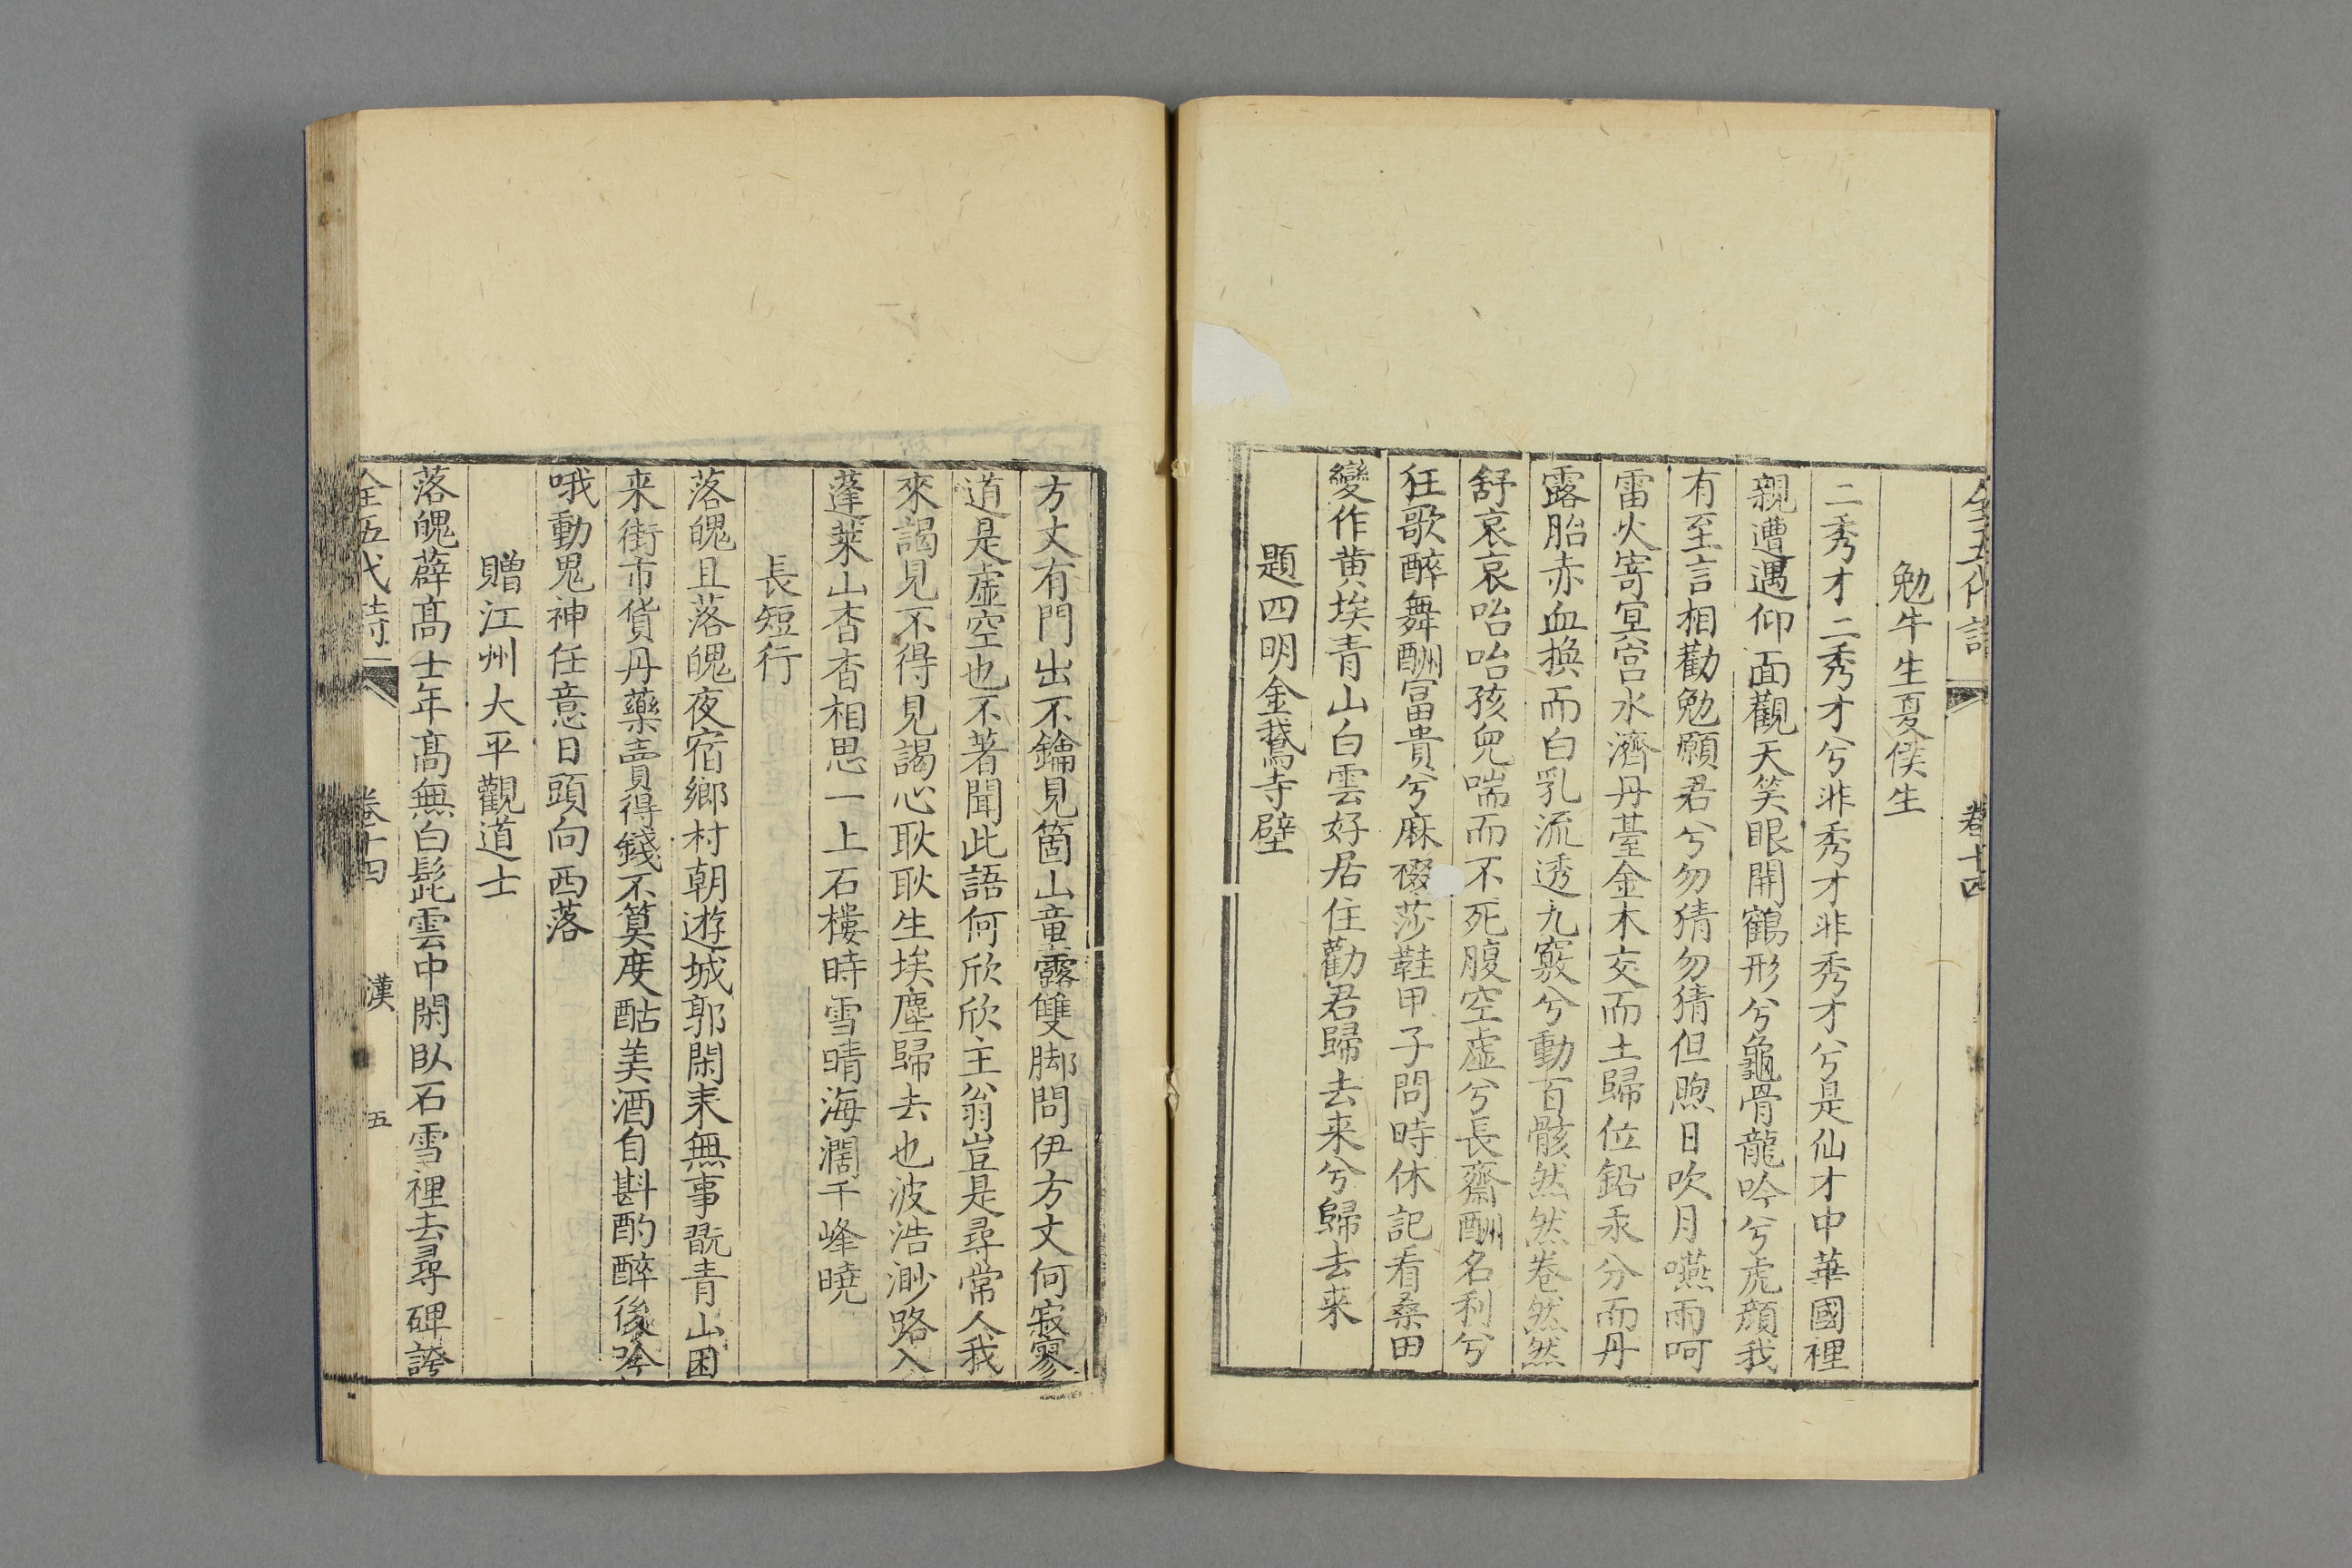 全五代詩 卷十四
勉牛生夏侯生
二秀才二秀才兮非秀才非秀才兮是仙才中華國裡
親遭遇仰面觀天笑眼開鶴形兮龜骨龍吟兮虎顔我
有至言相勸勉願君兮勿猜勿猜但煦日吹月嚥雨呵
雷火寄冥宫水濟丹臺金木交而土歸位鉛汞分而丹
露胎赤血換而白乳流透九竅兮動百骸然然卷然然
舒哀哀咍咍孩兒喘而不死腹空虛兮長齋酬名利兮
狂歌醉舞酬富貴兮麻𥿊莎鞋甲子問時休記看桑田
變作黄埃青山白雲好居住勸君歸去来兮歸去来
題四明金鵞寺壁
方丈有門出不鑰見箇山童露雙脚問伊方丈何寂寥
道是虛空也不著聞此語何欣欣主翁豈是尋常人我
來謁見不得見謁心耿耿生埃塵歸去也波浩渺路入
蓬萊山杳杳相思一上石樓時雪晴海濶千峰曉
長短行
落魄且落魄夜宿鄉村朝遊城郭閑来無事翫青山困
来街市貨丹藥賣得錢不筭度酤美酒自斟酌醉後吟
哦動鬼神任意日頭向西落
贈江州大平觀道士
落魄薜髙士年髙無白髭雲中閑臥石雪裡去尋碑誇
全五代詩 卷十四 漢 五